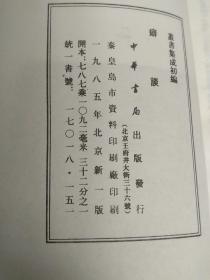 叢書集成初編
辯誣
中華書局出版發行
(北京王府井大街三十六號)
秦皇島市資料印刷廠印刷
一九八五年北京新一版
開本:七八七乘一〇九二毫米 三十二分之一
統一書號:一七〇一八·一五一